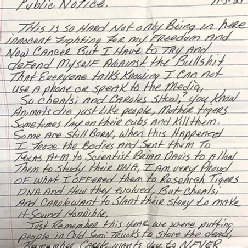 Public Notice.
This is so hard not only being in here
innocent fighting for my freedom and
now Cancer But I have to try and
defend myself against the Bullshit
that everyone talks knowing I can not
use a phone or speak to the media,
So cheats and Careles show, you know
Animals die just like people, Mother tigers
sometimes turn on their cubs and kill them.
Some are still born, when this happened
I froze the bodies and sent them to
Texas A+M to Scientist Brian Davis to allow
them to study their DNA. I am very proud
of what I offered them to research tigers
DNA and how they evolved, But cheats
and Carole want to slant their story to make
it sound horrible.
Just Remember this
people in
Remember Carole wants you to NEVER